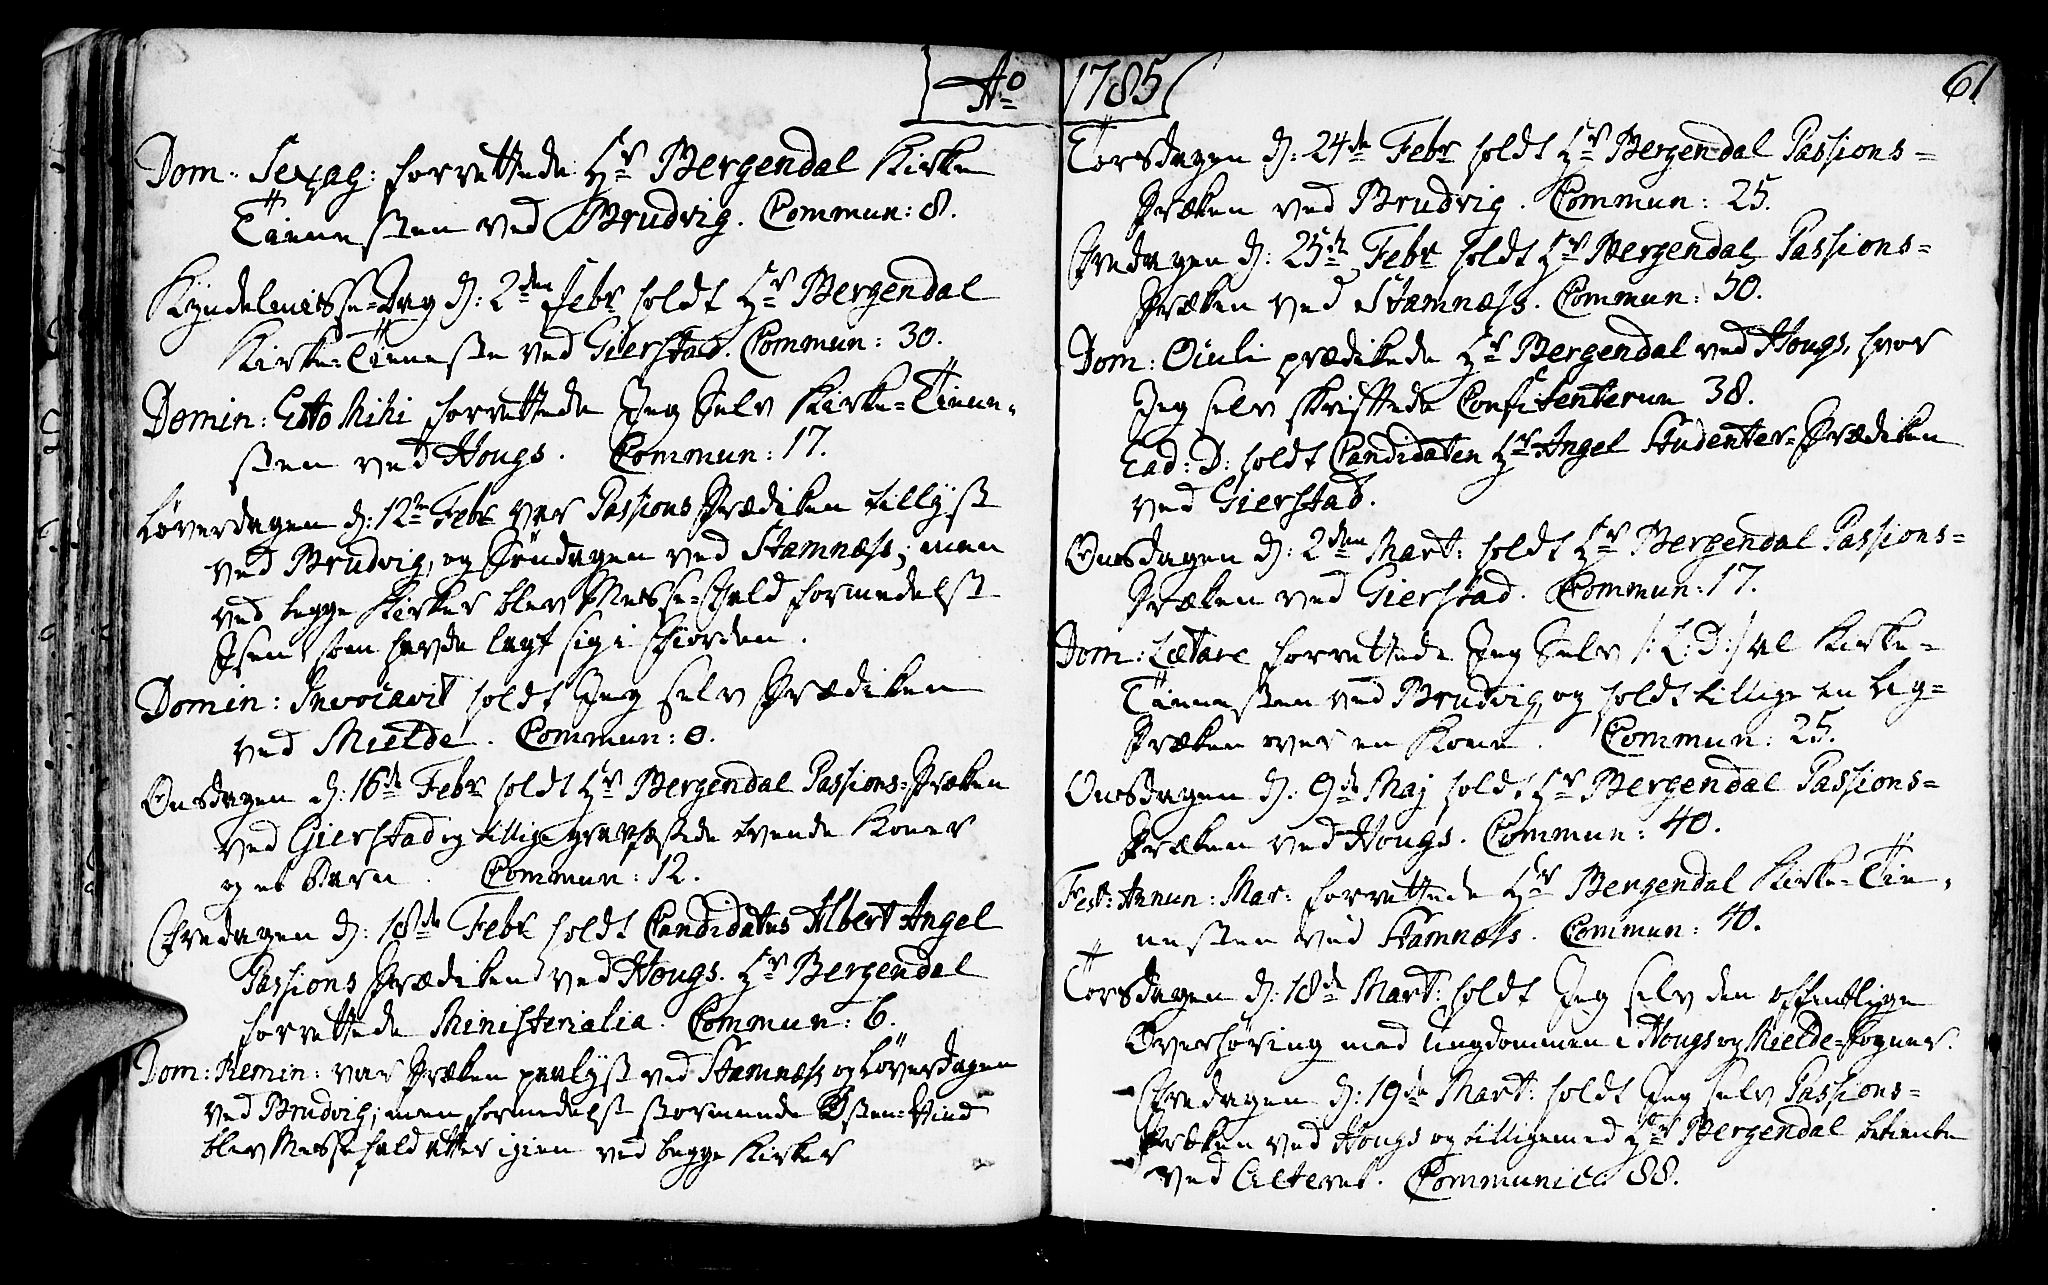 Ao 1785
61
Dom. Sexag: forrettede Hr Bergendal Kirke
Tienesten ved Brudvig. Commun: 8.
Kyndelmisse-Dag d: 2den Febr holdt Hr Bergendal
Kirke-Tieneste ved Gierstad. Commun: 30.
Domin: Esto Mihi forrettede Jeg Selv Kirke-Tiene-
sten ved Hougs. Commun: 17.
Løverdagen d: 12te Febr var Passions Prædiken tillyst
ved Brudvig, og Søndagen ved Stamnæss; men
ved begge Kirker blev Messe-Fald formedelst
Isen som havde lagt sig i Fiorden.
Domin: Invocavit holdt Jeg selv Prædiken
ved Mielde. Commun: 0.
Onsdagen d: 16de Febr holdt Hr Bergendal Passions-Præken
ved Gierstad og tillige gravfæstede tvende Koner
og et Barn. Commun: 12.
Fredagen d: 18de Febr holdt Candidatus Albert Angel
Passions Prædiken ved Hougs. Hr Bergendal
forrettede Ministerialia. Commun: 6.
Dom: Remin: var Præken paalyst ved Stamnæss og Løverdagen
ved Brudvig; men formedelst stormende Østen-Vind
blev Messefald atter igien ved begge Kirker
Torsdagen d: 24de Febr holdt Hr Bergendal Passions-
Præken ved Brudvig. Commun: 25.
Fredagen d: 25de Febr holdt Hr Bergendal Passions-
Præken ved Stamnæss. Commun: 50.
Dom: Oculi prædikede Hr Bergendal ved Hougs, hvor
Jeg selv skriftede Confitenterne 38.
Ead: D: holdt Candidaten Hr Angel Studenter-Prædiken
ved Gierstad.
Onsdagen d: 2den Mart: holdt Hr Bergendal Passions-
Præken ved Gierstad. Commun: 17.
Dom: Lætare forrettede Jeg Selv /: L: D:/ al Kirke-
Tienesten ved Brudvig, og holdt tillige en Lig-
Præken over en Kone. Commun: 25.
Onsdagen d: 9de Maj holdt Hr Bergendal Passions-
Præken ved Hougs. Commun: 40.
Fest: Annun: Mar: forrettede Hr Bergendal Kirke-Tie-
nesten ved Stamnæss. Commun: 40.
Torsdagen d: 18de Mart: holdt Jeg selv den offentlige
Overhøring med Ungdommen i Hougs og Mielde-Sogner.
Fredagen d: 19de Mart: holdt Jeg selv Passions-
Præken ved Hougs og tilligemed Hr Bergendal betiente
ved Alteret. Communic. 88.